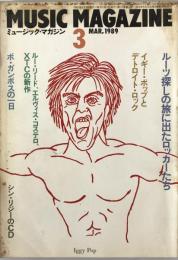 MUSIC MAGAZINE
ミュージック・マガジン
3
MAR. 1989
ルーツ探しの旅に出たロッカーたち
イギー・ポップと
デトロイト・ロック
ルー・リード、エルヴィス・コステロ、
XTCの新作
ボ・ガンボスの一日
シン・リジーのCD
Iggy Pop